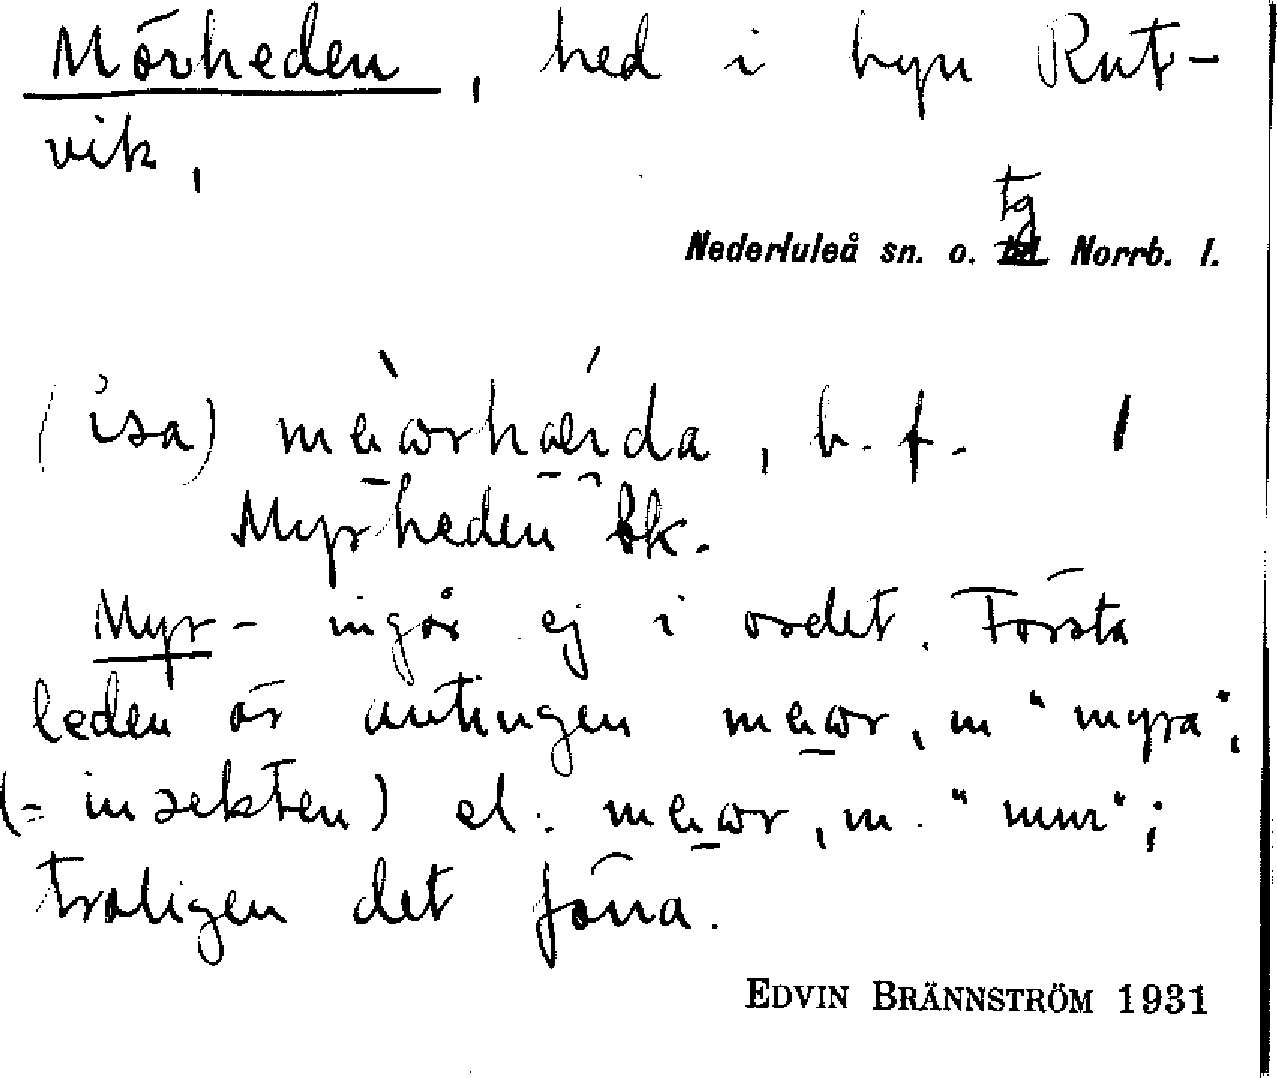 Mörheden, hed i byn Rut-
vik,
tg
Nederluleå sn. o. Norrb. l.
(isa) meworhæida, b. f.
Myrheden Ek.
Myr- ingår ej i ordet. Första
leden är antingen mewor, m "myra",
(= insekten) el. mewor, m. "mur";
troligen det förra.
EDVIN BRÄNNSTRÖM 1931